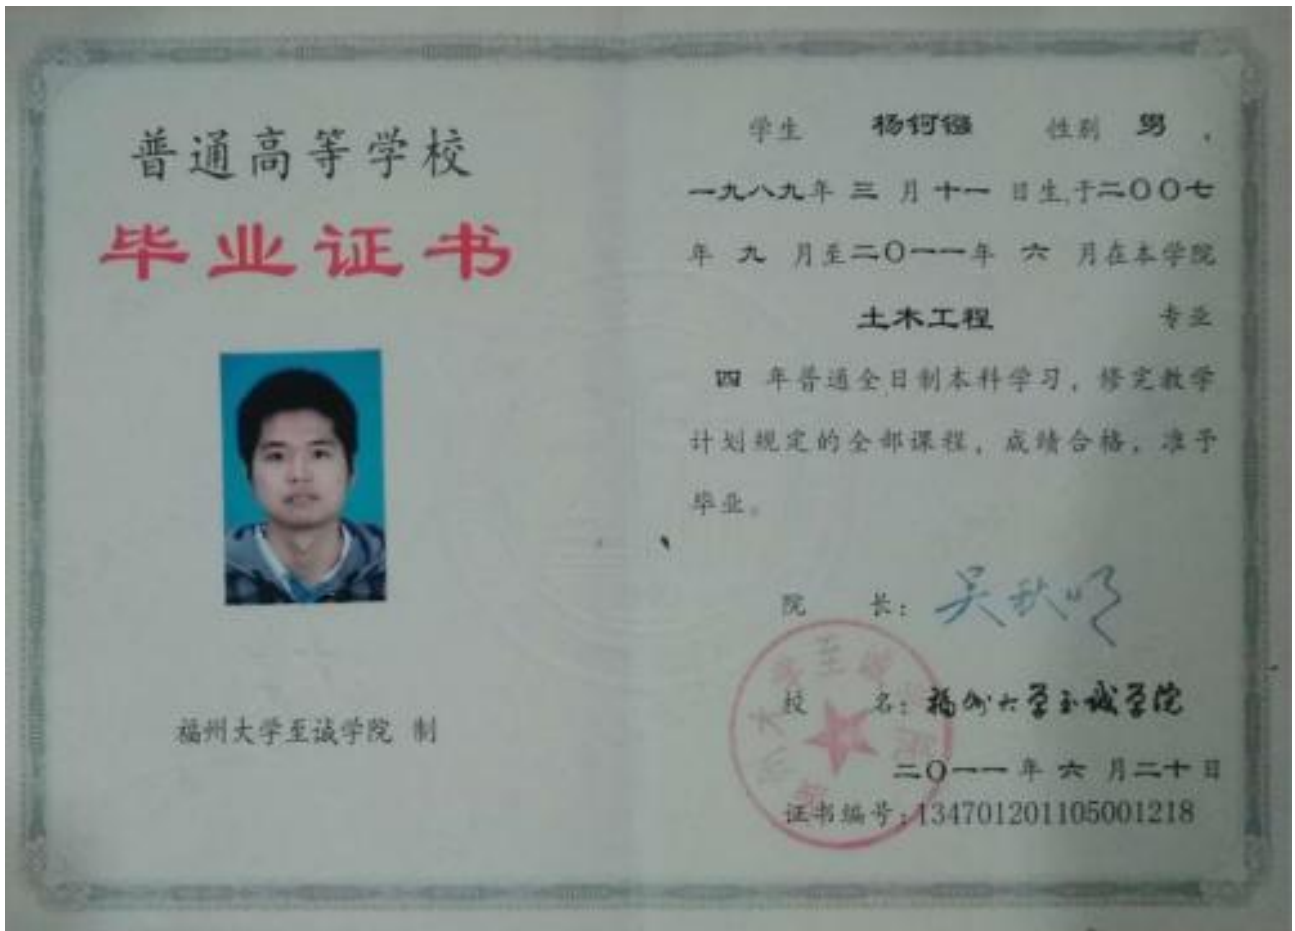 普通高等学校
毕业证书
福州大学至诚学院 制
学生 杨钶镪 性别 男 ，
一九八九年 三 月 十一 日生,于二〇〇七
年 九 月至二〇一一年 六 月在本学院
土木工程 专业
四 年普通全日制本科学习，修完教学
计划规定的全部课程，成绩合格，准予
毕业。
院 长：吴秋明
校 名：福州大学至诚学院
二〇一一年 六 月二十日
证书编号：134701201105001218
福州大学至诚学院